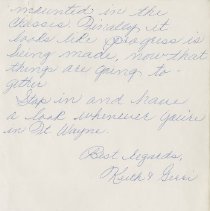 mounted in the
classes. Finally, it
looks like progress is
being made, now that
things are going to-
gether
Stop in and have
a look whenever you're
in Ft Wayne.
Best regards,
Keith &